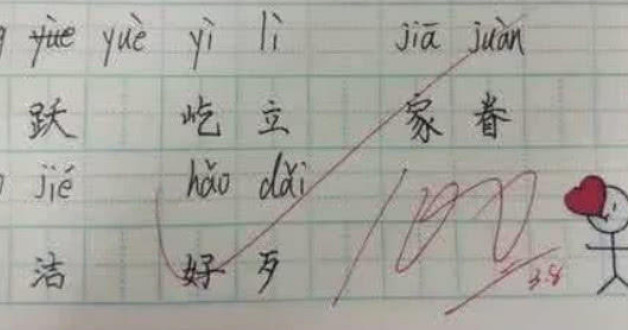 yuè yuè yì lì jiā juàn
跃 屹 立 家 眷
jié hǎo dǎi
洁 好 歹
100
3.8